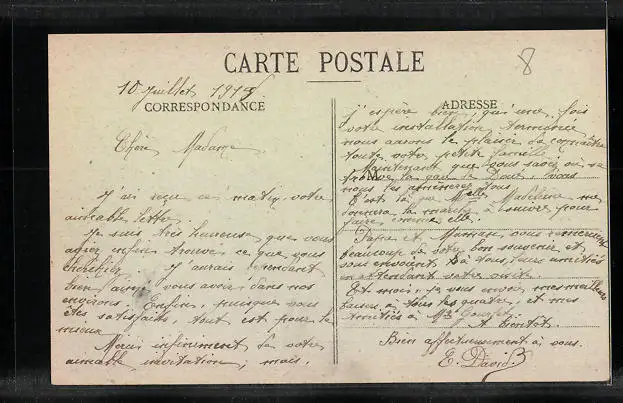 CARTE POSTALE
8
10 Juillet 1915
CORRESPONDANCE
ADRESSE
Chère Madame
J'ai reçu ce matin votre
aimable lettre.
Je suis très heureuse que vous
ayiez enfin trouvé ce que vous
cherchiez. J'aurais cependant
bien aimé vous avoir dans nos
environs. Enfin, puisque vous
êtes satisfaits, tout est pour le
mieux.
Merci infiniment de votre
aimable invitation, mais
j'espère bien, qu'une fois
votre installation terminée
nous aurons le plaisir de connaître
toute votre petite famille.
Maintenant que vous savez où se
trouve la gare de vous
nous les amènerez tous.
C'est là que Melle Madeleine me
donnera la marche à suivre pour
faire comme elle.
M
Papa et Maman vous remercient
beaucoup de votre bon souvenir et
vous envoient à tous leurs amitiés
en attendant votre visite.
Et moi, je vous envoie mes meilleurs
baisers à tous les quatre, et mes
amitiés à Mr
A bientôt.
Bien affectueusement à vous.
E. David